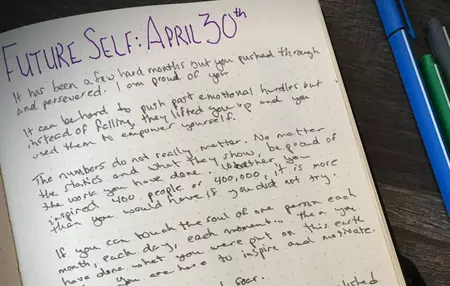 FUTURE SELF: APRIL 30th
It has been a few hard months but you pushed through
and persevered. I am proud of you
It can be hard to push past emotional hurdles but
instead of falling, they lifted you up and you
used them to empower yourself.
The numbers do not really matter. No matter
the statics and what they show, be proud of
the work you have done. Whether you
inspired 400 people or 400,000, it is more
than you would have if you did not try.
If you can touch the soul of one person each
month, each day, each moment... then you
have done what you were put on this earth
you are here to inspire and motivate.
fear.